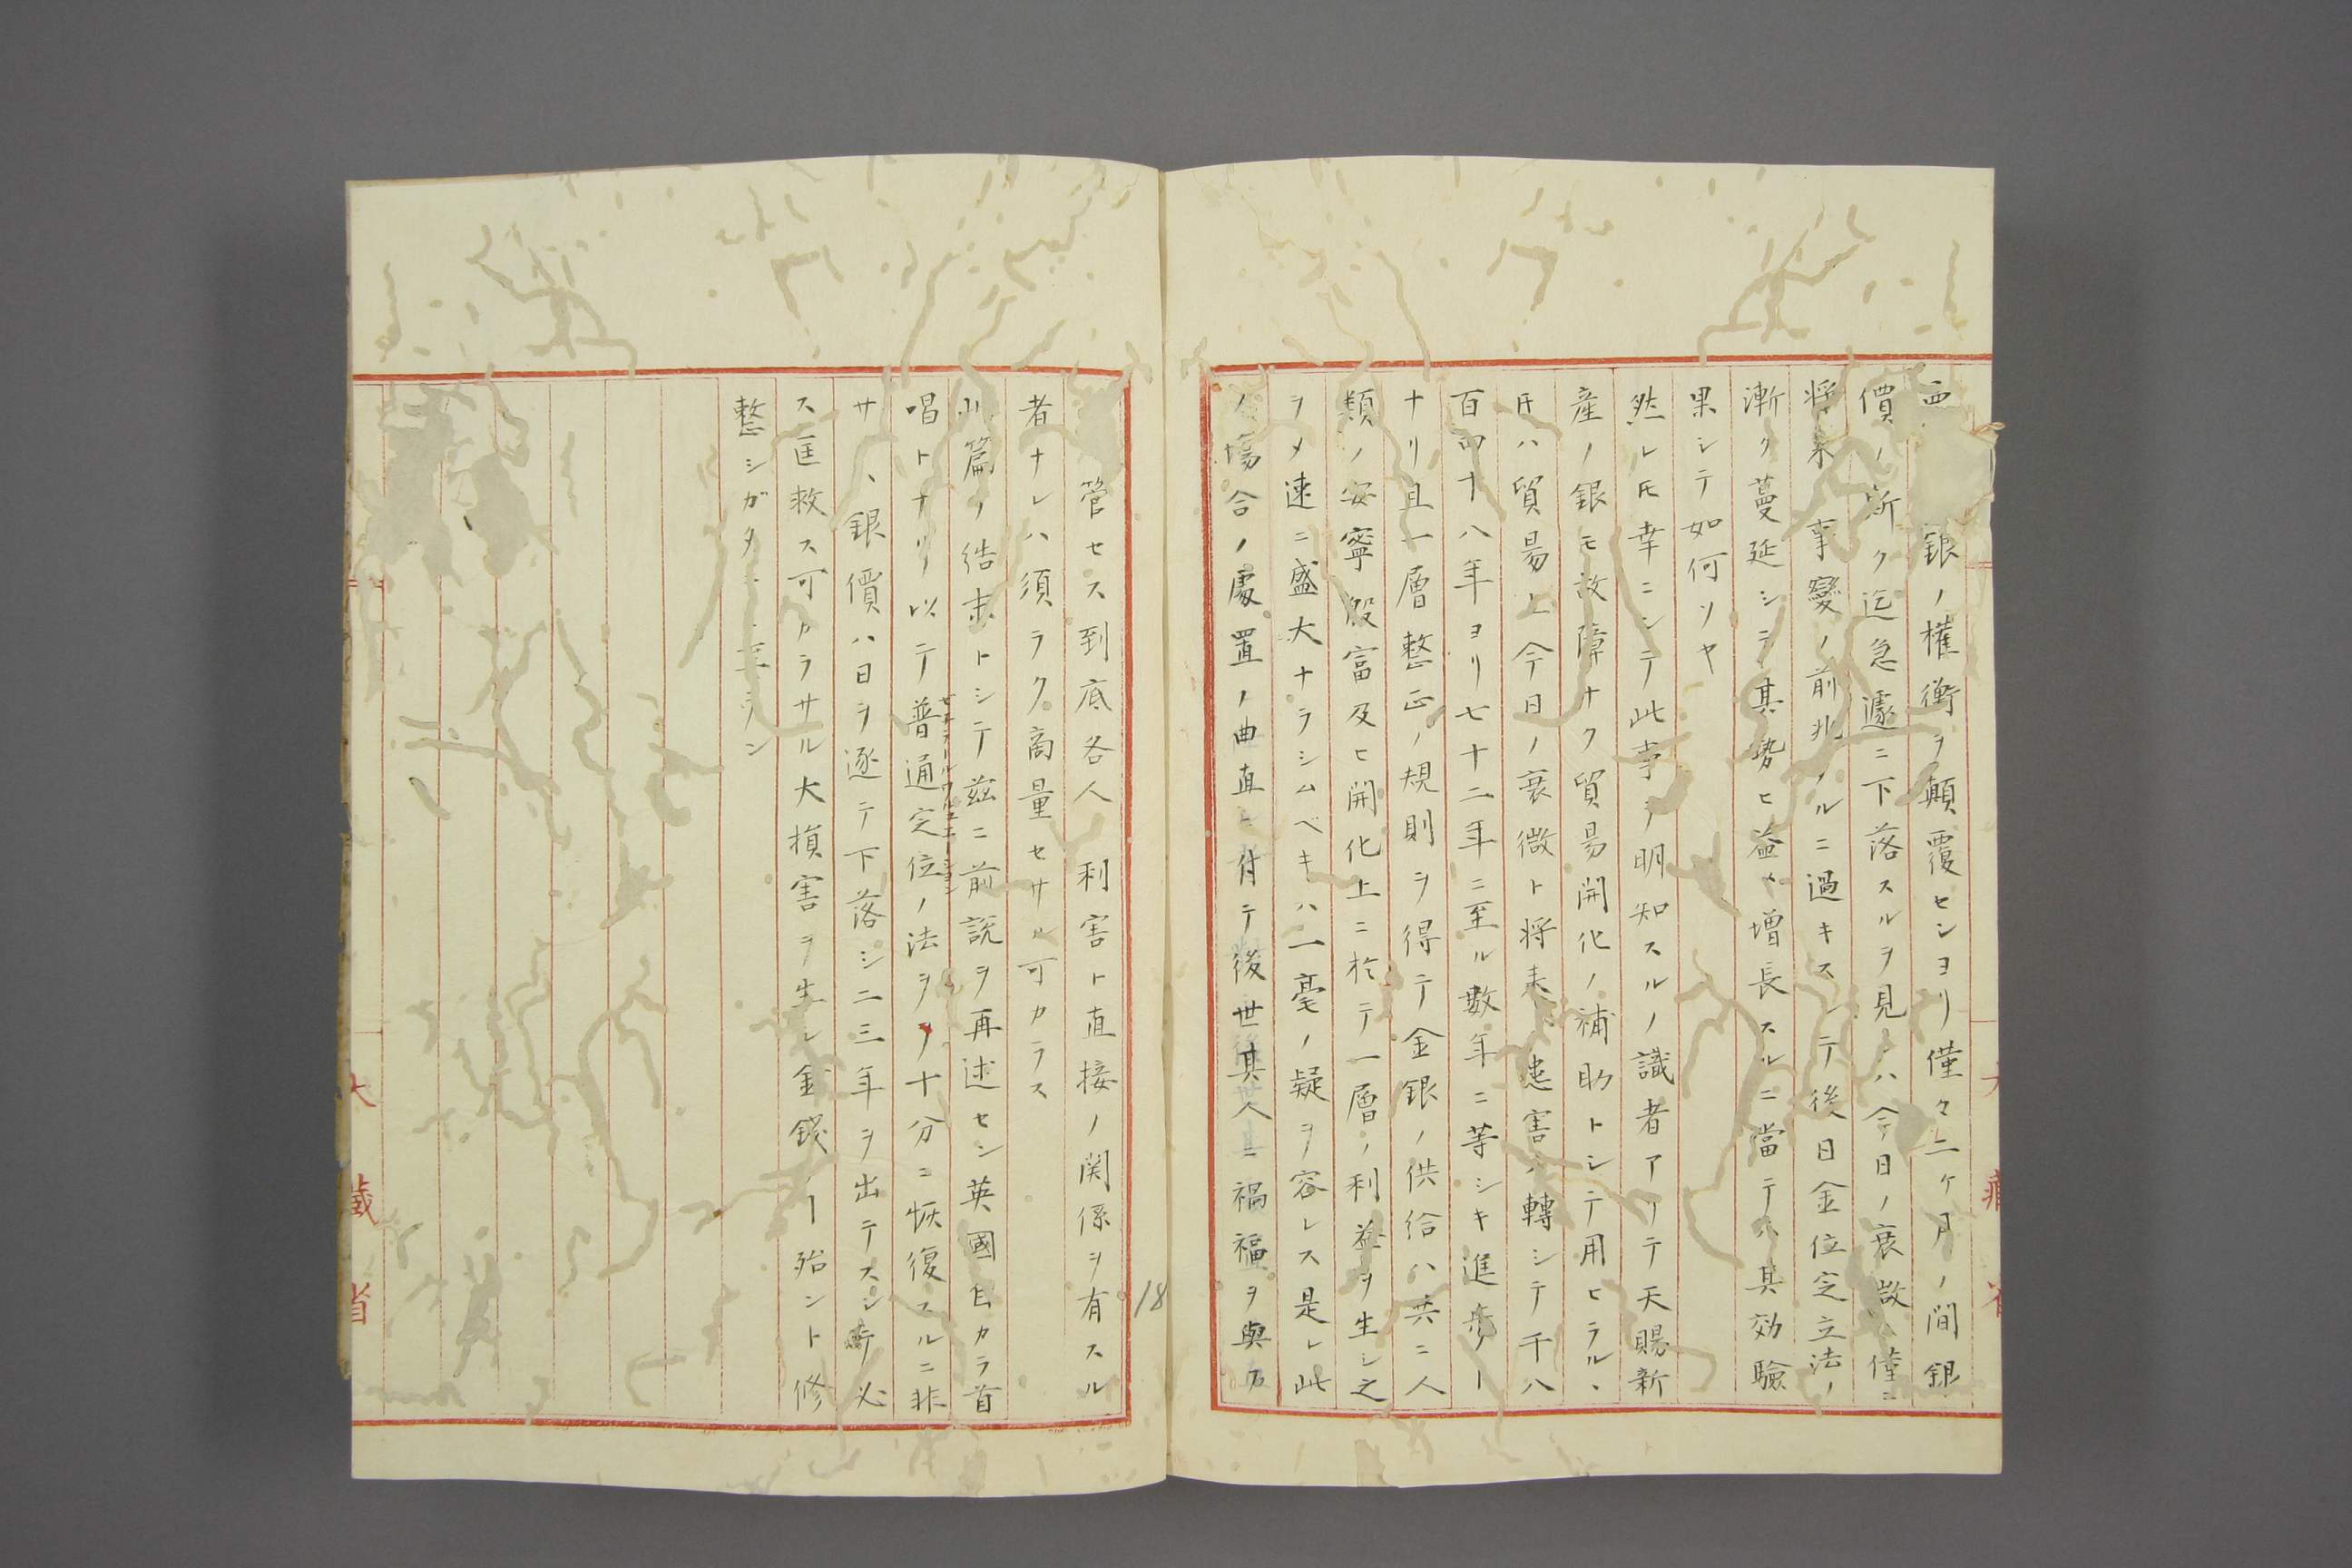 西 銀ノ権衡ヲ顛覆センヨリ僅々二ケ月ノ間銀
價ノ斯ク迄急遽ニ下落スルヲ見レハ今日ノ衰敗ハ僅ニ
将来事變ノ前兆 ルニ過キスシテ後日金位定立法ノ
漸ク蔓延シテ其勢ヒ益々増長スルニ當テハ其効驗
果シテ如何ソヤ
然レ𪜈幸ニシテ此事ヲ明知スルノ識者アリテ天賜新
産ノ銀モ故障ナク貿易開化ノ補助トシテ用ヒラル、
𪜈ハ貿易上今日ノ衰微ト将来ノ患害ハ轉シテ千八
百四十八年ヨリ七十二年ニ至ル數年ニ等シキ進歩ノ一
ナリ且一層整正ノ規則ヲ得テ金銀ノ供給ハ共ニ人
類ノ安寧殷富及ヒ開化上ニ於テ一層ノ利益ヲ生シ之
ヲメ速ニ盛大ナラシムベキハ一毫ノ疑ヲ容レス是レ此
ノ場合ノ處置ノ曲直ニ付テ後世其人ニ禍福ヲ與フ
管セス到底各人 利害ト直接ノ関係ヲ有スル
者ナレハ須ラク商量セサル可カラス
此篇ノ結末トシテ茲ニ前説ヲ再述セン英國自カラ首
唱トナリ以テ普通定位ノ法ヲ十分ニ恢復スルニ非
サ、銀價ハ日ヲ逐テ下落シ二三年ヲ出テスシテ必
ス匡救ス可カラサル大損害ヲ生シ金錢 殆ント修
整シガタ 至ラン
大藏省
18
大藏省